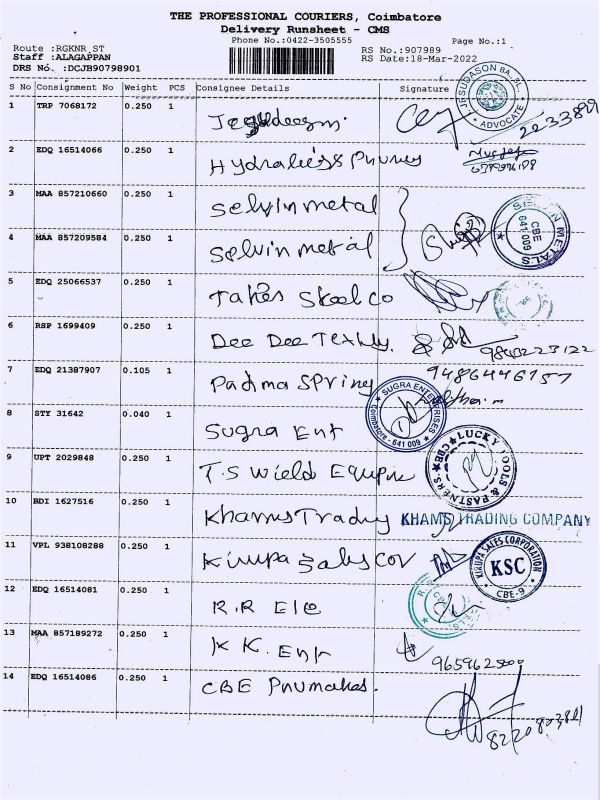 THE PROFESSIONAL COURIERS, Coimbatore
Delivery Runsheet - CMS
Phone No.:0422-3505555
Page No.:1
Route :RGKNR_ST
RS No.:907989
Staff :ALAGAPPAN
RS Date:18-Mar-2022
DRS No. :DCJB90798901
S No Consignment No Weight PCS Consignee Details Signature
1 TRP 7068172 0.250 1
J.JESUDASON BA.BL. ADVOCATE
2 EDQ 16514066 0.250 1
3 MAA 857210660 0.250 1 Selvin metal
4 MAA 857209584 0.250 1 Selvin metal
SELVIN METALS CBE 641 009
5 EDQ 25066537 0.250 1 Steel co
6 RSP 1699409 0.250 1 Dee Dee
9840223122
7 EDQ 21387907 0.105 1 Padma Spring 9486446757
8 STY 31642 0.040 1 Sugra Ent
SUGRA ENTERPRISES Coimbatore - 641 009
9 UPT 2029848 0.250 1 T.S Wield Equpm
LUCKY TOOLS & FASTNERS CBE
10 BDI 1627516 0.250 1 Khams Trading KHAMS TRADING COMPANY
11 VPL 938108288 0.250 1 Kirupa Sales Cor
KIRUPA SALES CORPORATION KSC CBE-9
12 EDQ 16514081 0.250 1 R.R Ele
13 MAA 857189272 0.250 1 K K. Ent
14 EDQ 16514086 0.250 1 CBE